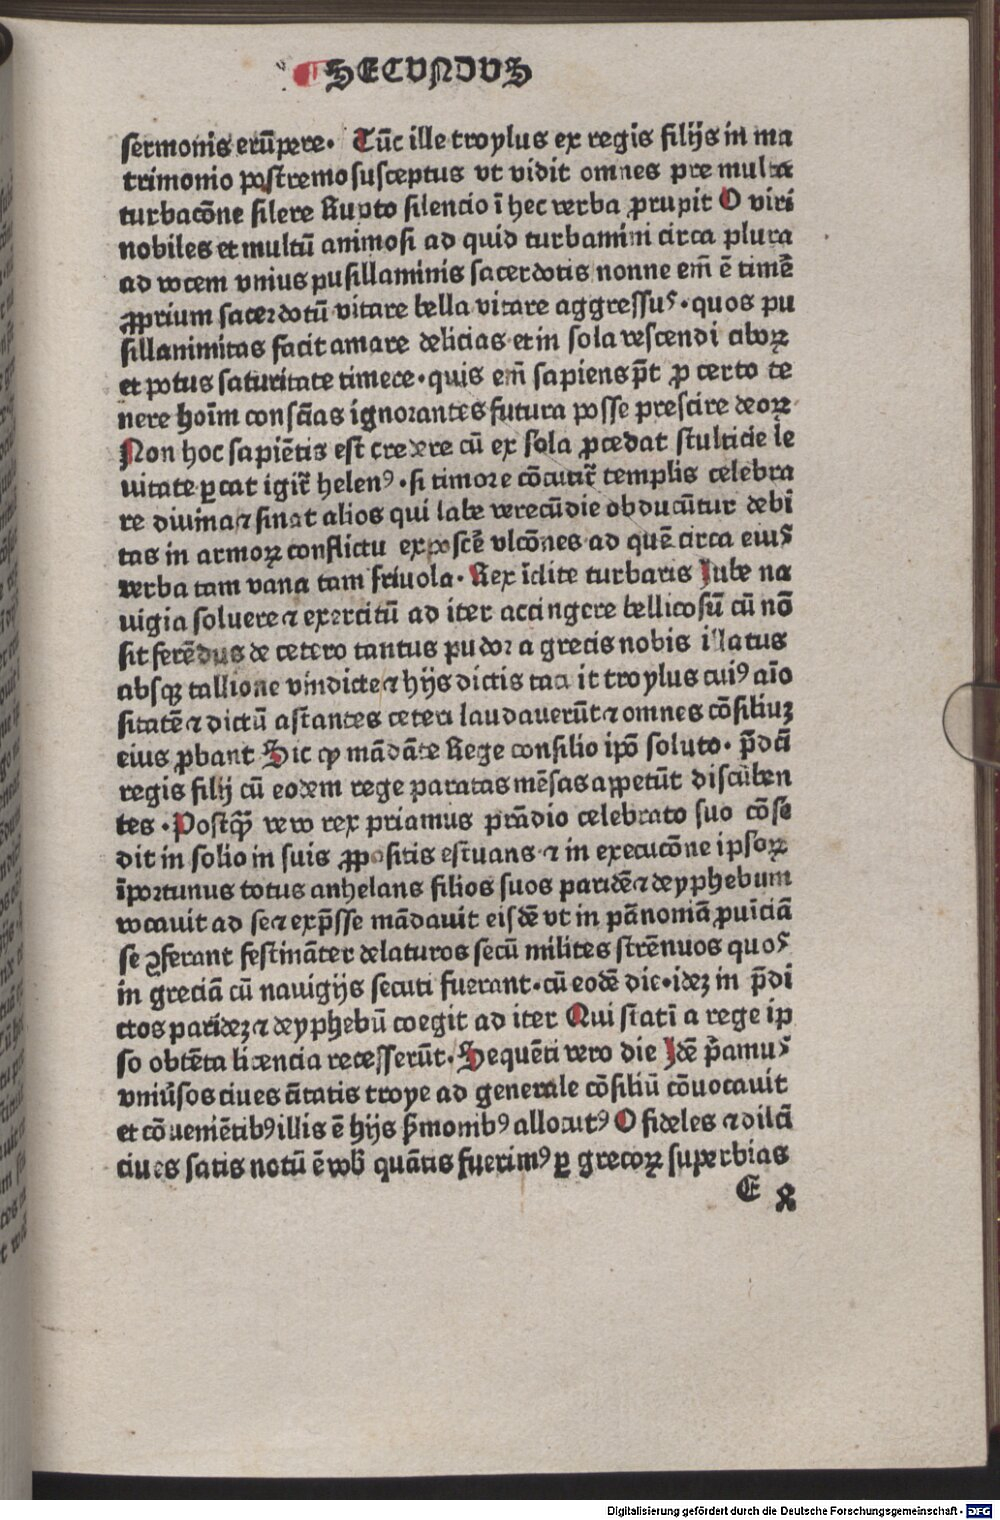 SECVNDVS
sermonis erūpere. Tūc ille troylus ex regis filijs in ma
trimonio postremo susceptus vt vidit omnes pre multa
turbacōne silere Rupto silencio ī hec verba ꝓrupit O viri
nobiles et multū animosi ad quid turbamini circa plura
ad vocem vnius pusillaminis sacerdotis nonne em̄ ē timē
ꝓprium sacerdotū vitare bella vitare aggressus. quos pu
sillanimitas facit amare delicias et in sola vescendi aboꝝ
et potus saturitate timece. quis em̄ sapiens p̄t ꝓ certo te
nere hoīm consc̄ias ignorantes futura posse prescire deoꝝ
Non hoc sapiētis est credere cū ex sola ꝓcedat stulticie le
uitate ꝑcat igit̄ helenꝰ. si timore cōcutit̄ templis celebra
re diuina ⁊ sinat alios qui labe verecūdie obducūtur debi
tas in armoꝝ conflictu exposcē vlcōnes ad quē circa eius
verba tam vana tam friuola. Rex īclite turbaris Iube na
uigia soluere ⁊ exercitū ad iter accingere bellicosū cū nō
sit ferēdus de cetero tantus pudor a grecis nobis illatus
absqꝫ tallione vindicte ⁊ hijs dictis tacuit troylus cuiꝰ aīo
sitatē ⁊ dictū astantes ceteri laudauerūt ⁊ omnes cōsiliuꝫ
eius ꝓbant Sic ꝙ mādāte Rege consilio ipō soluto. p̄dc̄i
regis filij cū eodem rege paratas mēsas appetūt discūben
tes. Postꝙ̄ vero rex priamus prādio celebrato suo cōse
dit in solio in suis ꝓpositis estuans ⁊ in execucōne ipsoꝝ
īportunus totus anhelans filios suos paridē ⁊ deyphebum
vocauit ad se ⁊ exp̄sse mādauit eisdē vt in pānoniā ꝓuīciā
se ꝯferant festināter delaturos secū milites strēnuos quos
in greciā cū nauigijs secuti fuerant. cū eodē die. ideꝫ in p̄di
ctos parideꝫ ⁊ deyphebū coegit ad iter Qui statī a rege ip
so obtēta licencia recesserūt. Sequēti vero die Idē p̄amus
vniūsos ciues c̄itatis troye ad generale cōsiliū cōuocauit
et cōueniētibꝰ illis ē hijs ẜmonibꝰ allocutꝰ O fideles ⁊ dilc̄i
ciues satis notū ē vob̄ quātis fuerimꝰ ꝑ grecoꝝ superbias
E